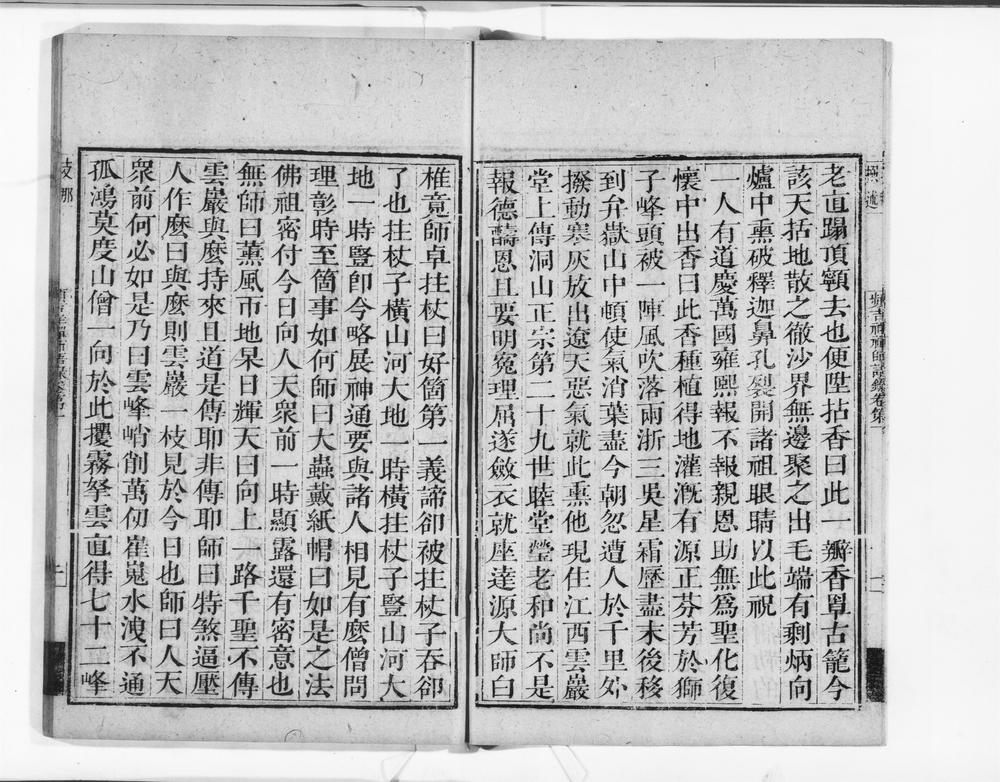 老直蹋頂𩕳去也便陞拈香曰此一瓣香亘古籠今
該天括地散之徹沙界無邊聚之出毛端有剩炳向
爐中熏破釋迦鼻孔裂開諸祖眼睛以此祝
一人有道慶萬國雍熙報不報親恩助無為聖化復
懷中出香曰此香種植得地灌漑有源正芬芳於獅
子峰頭被一陣風吹落兩浙三吳星霜歷盡末後移
到弁嶽山中頓使氣消葉盡今朝忽遭人於千里外
撥動寒灰放出遼天惡氣就此熏他現住江西雲巖
堂上傳洞山正宗第二十九世睦堂瑩老和尚不是
報德疇恩且要明冤理屈遂斂衣就座達源大師白
椎竟師卓拄杖曰好箇第一義諦卻被拄杖子吞卻
了也拄杖子橫山河大地一時橫拄杖子豎山河大
地一時豎卽今略展神通要與諸人相見有麼僧問
理彰時至箇事如何師曰大蟲戴紙帽曰如是之法
佛祖密付今日向人天衆前一時顯露還有密意也
無師曰薰風帀地杲日輝天曰向上一路千聖不傳
雲巖與麼持來且道是傳耶非傳耶師曰特煞逼壓
人作麼曰與麼則雲巖一枝見於今日也師曰人天
衆前何必如是乃曰雲峰峭削萬仞崔嵬水洩不通
孤鴻莫度山僧一向於此攫霧拏雲直得七十二峰